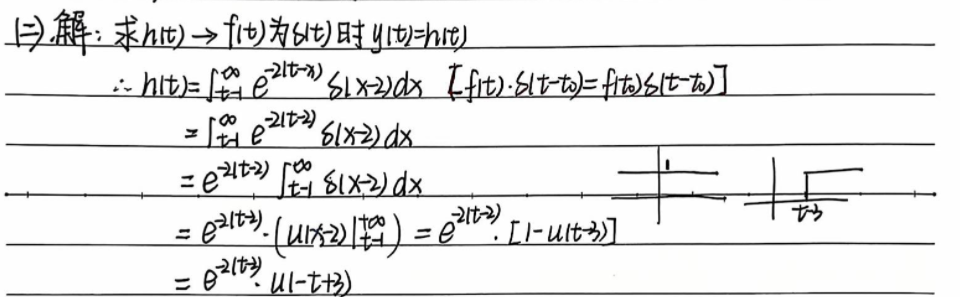 (二).解：求h(t)→f(t)为δ(t)时 y(t)=h(t)
∴ h(t)=∫_{t-1}^{∞} e^{-2(t-x)} δ(x-2)dx [f(t)·δ(t-t₀)=f(t₀)δ(t-t₀)]
=∫_{t-1}^{∞} e^{-2(t-2)} δ(x-2)dx
=e^{-2(t-2)} ∫_{t-1}^{∞} δ(x-2)dx
1
t-3
=e^{-2(t-2)}·(u(x-2)|_{t-1}^{+∞}) = e^{-2(t-2)}·[1-u(t-3)]
=e^{-2(t-2)}·u(-t+3)